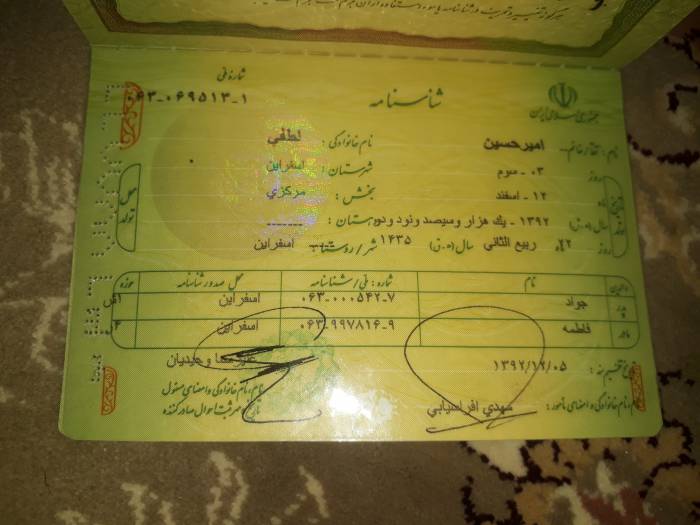 شماره ملی
۰۶۳-۰۶۹۵۱۳-۱
شناسنامه
جمهوری اسلامی ایران
نام : آقا / خانم : امیرحسین
نام خانوادگی : لطفی
روز ۰۳ - سوم
شهرستان : اسفراین
ماه ۱۲ - اسفند
بخش : مرکزی
سال (ه.ش) ۱۳۹۲ - یك هزار و سیصد و نود و دو
دهستان : ------
روز ۲ ماه ربیع الثانی سال (ه.ق) ۱۴۳۵
شهر / روستا : اسفراین
تاریخ تولد
محل تولد
والدین نام شماره : ملی / شناسنامه محل صدور شناسنامه حوزه
پدر جواد ۰۶۳-۰۰۰۵۴۲-۷ اسفراین
مادر فاطمه ۰۶۳-۹۹۷۸۱۶-۹ اسفراین
تاریخ تنظیم سند : ۱۳۹۲/۱۲/۰۵
وحیدیان
نام، نام خانوادگی و امضای مامور : مهدي افراسیابي
نام، نام خانوادگی و امضای مسئول
ثبت احوال صادر کننده